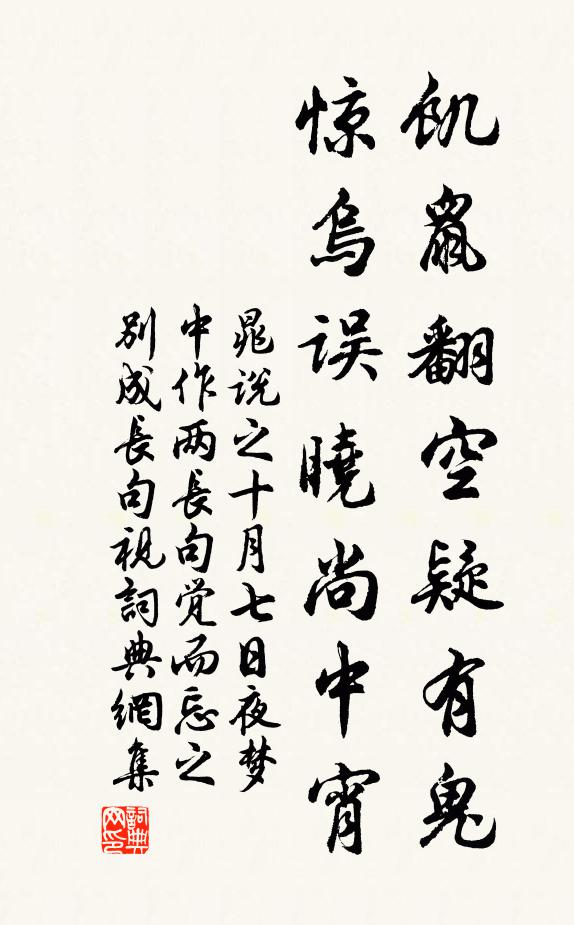 飢鼠翻空疑有鬼
惊烏误曉尚中宵
晁说之十月七日夜梦
中作两長句觉而忘之
别成長句視詞典網集
詞典网印